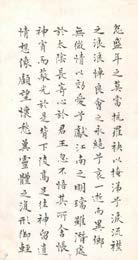 怨盛年之莫當抗羅袂以掩涕兮淚流襟
之浪浪悼良會之永絕兮哀一逝而異鄉
無微情以效愛兮獻江南之明璫雖潛處
於太陰長寄心於君王忽不悟其所舍悵
神宵而蔽光於是背下陵高足往神留遺
情想像顧望懷愁冀靈體之復形御輕